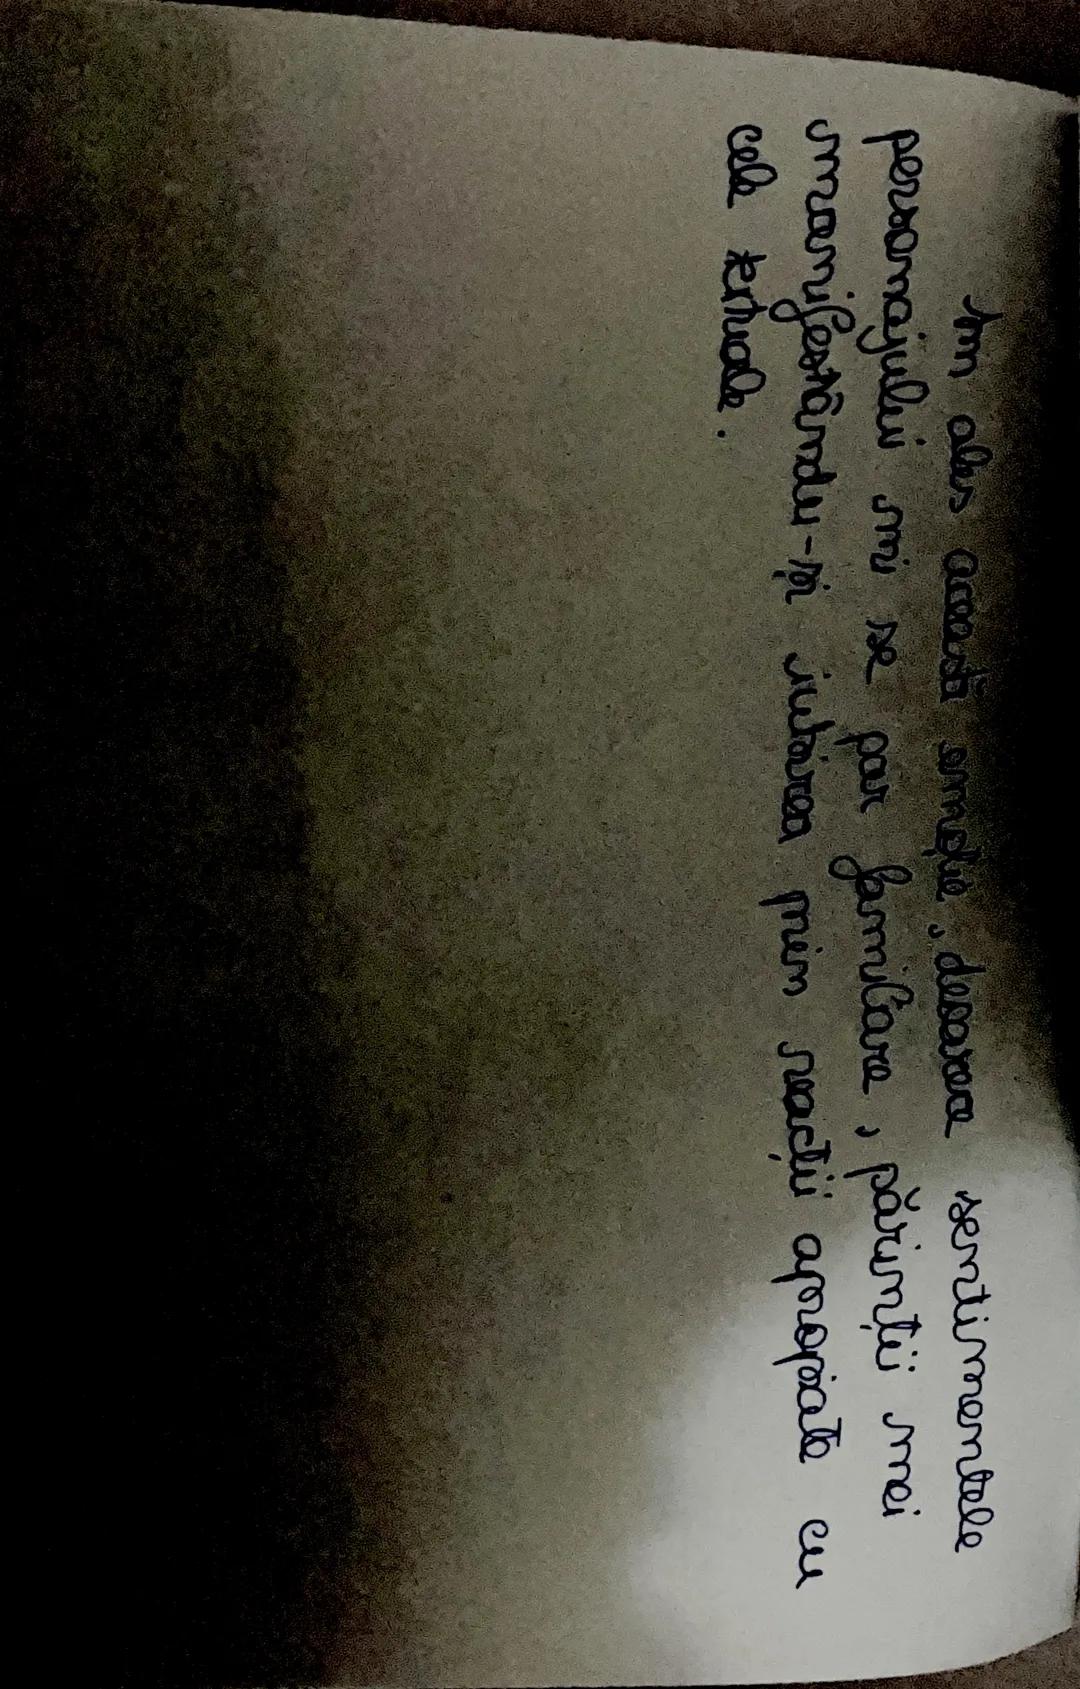 Am ales această emoție, desarea sentimentele
personajului mi se par familiare, părinții mei
manifestându-și iubirea prin reacții apropiate cu
cele